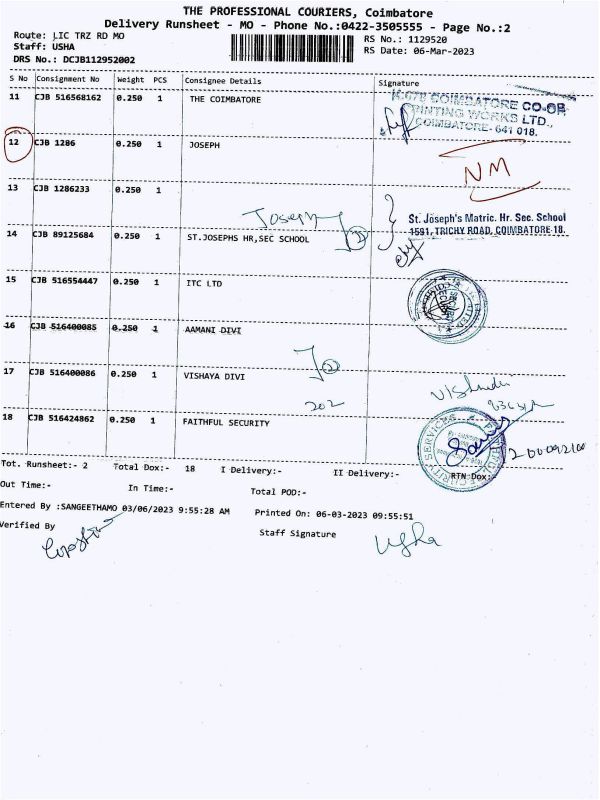 THE PROFESSIONAL COURIERS, Coimbatore
Delivery Runsheet - MO - Phone No.:0422-3505555 - Page No.:2
Route: LIC TRZ RD MO
RS No.: 1129520
Staff: USHA
RS Date: 06-Mar-2023
DRS No.: DCJB112952002
S No Consignment No Weight PCS Consignee Details Signature
11 CJB 516568162 0.250 1 THE COIMBATORE
COIMBATORE CO-OP.
PRINTING WORKS LTD.,
COIMBATORE- 641 018.
12 CJB 1286 0.250 1 JOSEPH
NM
13 CJB 1286233 0.250 1
Joseph
St. Joseph's Matric. Hr. Sec. School
1591, TRICHY ROAD, COIMBATORE-18.
14 CJB 89125684 0.250 1 ST.JOSEPHS HR,SEC SCHOOL
15 CJB 516554447 0.250 1 ITC LTD
16 CJB 516400085 0.250 1 AAMANI DIVI
17 CJB 516400086 0.250 1 VISHAYA DIVI
202
18 CJB 516424862 0.250 1 FAITHFUL SECURITY
Tot. Runsheet:- 2 Total Dox:- 18 I Delivery:- II Delivery:- RTN Dox:
Out Time:- In Time:- Total POD:-
Entered By :SANGEETHAMO 03/06/2023 9:55:28 AM Printed On: 06-03-2023 09:55:51
Verified By Staff Signature
Usha